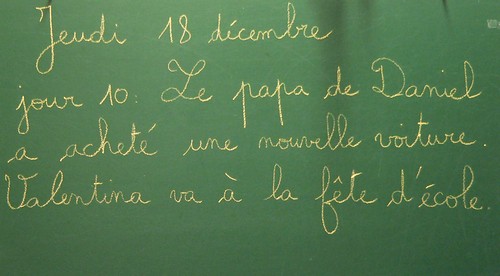 Jeudi 18 décembre
jour 10: Le papa de Daniel
a acheté une nouvelle voiture.
Valentina va à la fête d'école.